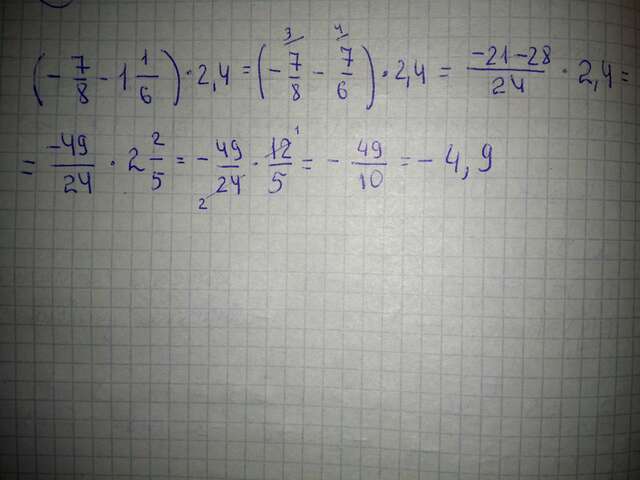 (-7/8 - 1 1/6) · 2,4 = (-7/8 ³ - 7/6 ⁴) · 2,4 = -21-28/24 · 2,4 =
= -49/24 · 2 2/5 = - 49/24 ₂ · 12/5 ¹ = - 49/10 = -4,9